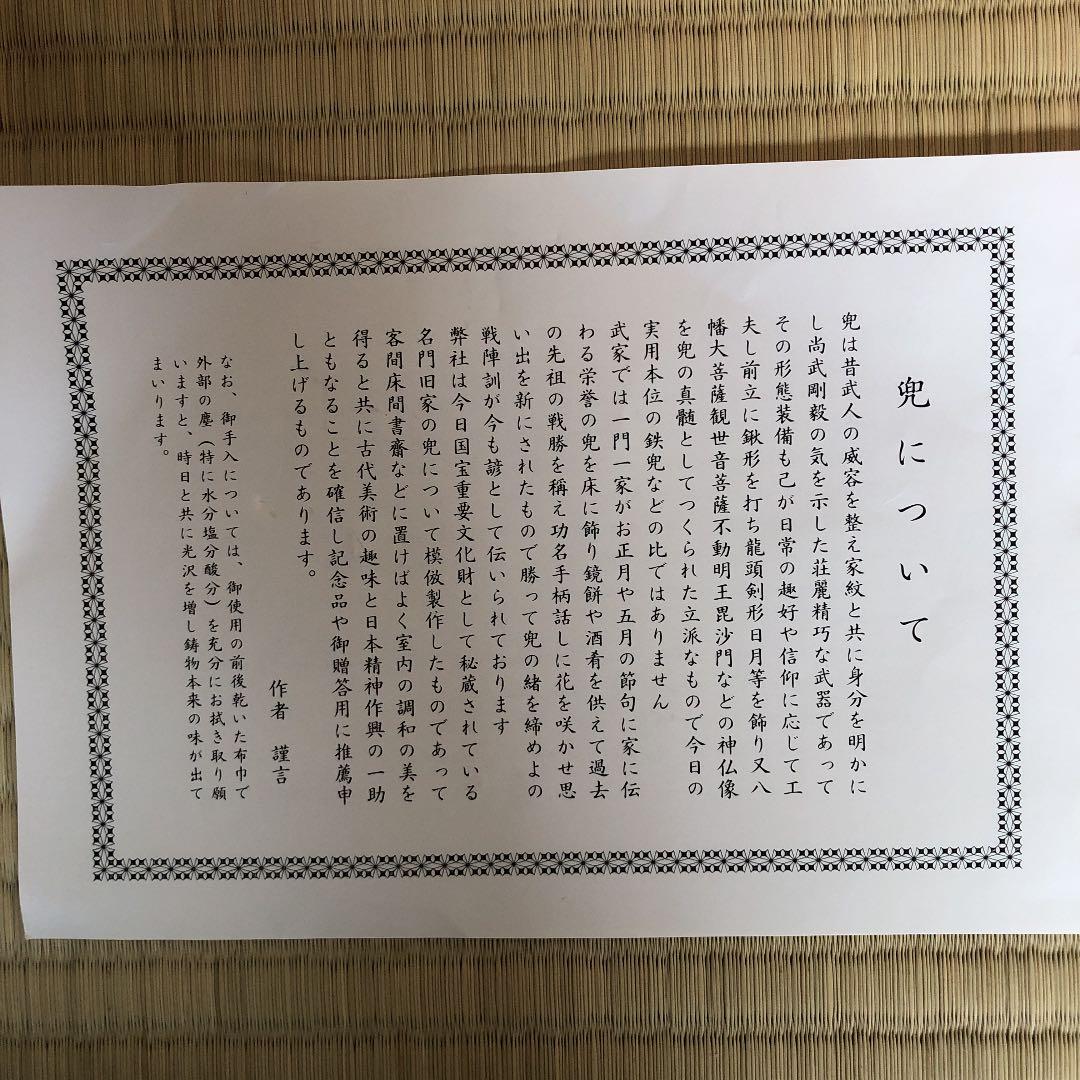 兜について
兜は昔武人の威容を整え家紋と共に身分を明かに
し尚武剛毅の気を示した荘麗精巧な武器であって
その形態装備も己が日常の趣好や信仰に応じて工
夫し前立に鍬形を打ち龍頭剣形日月等を飾り又八
幡大菩薩観世音菩薩不動明王毘沙門などの神仏像
を兜の真髄としてつくられた立派なもので今日の
実用本位の鉄兜などの比ではありません
武家では一門一家がお正月や五月の節句に家に伝
わる栄誉の兜を床に飾り鏡餅や酒肴を供えて過去
の先祖の戦勝を稱え功名手柄話しに花を咲かせ思
い出を新にされたもので勝って兜の緒を締めよの
戦陣訓が今も諺として伝いられております
弊社は今日国宝重要文化財として秘蔵されている
名門旧家の兜について模倣製作したものであって
客間床間書齋などに置けばよく室内の調和の美を
得ると共に古代美術の趣味と日本精神作興の一助
ともなることを確信し記念品や御贈答用に推薦申
し上げるものであります。
作者 謹言
なお、御手入については、御使用の前後乾いた布巾で
外部の塵（特に水分塩分酸分）を充分にお拭き取り願
いますと、時日と共に光沢を増し鋳物本来の味が出て
まいります。